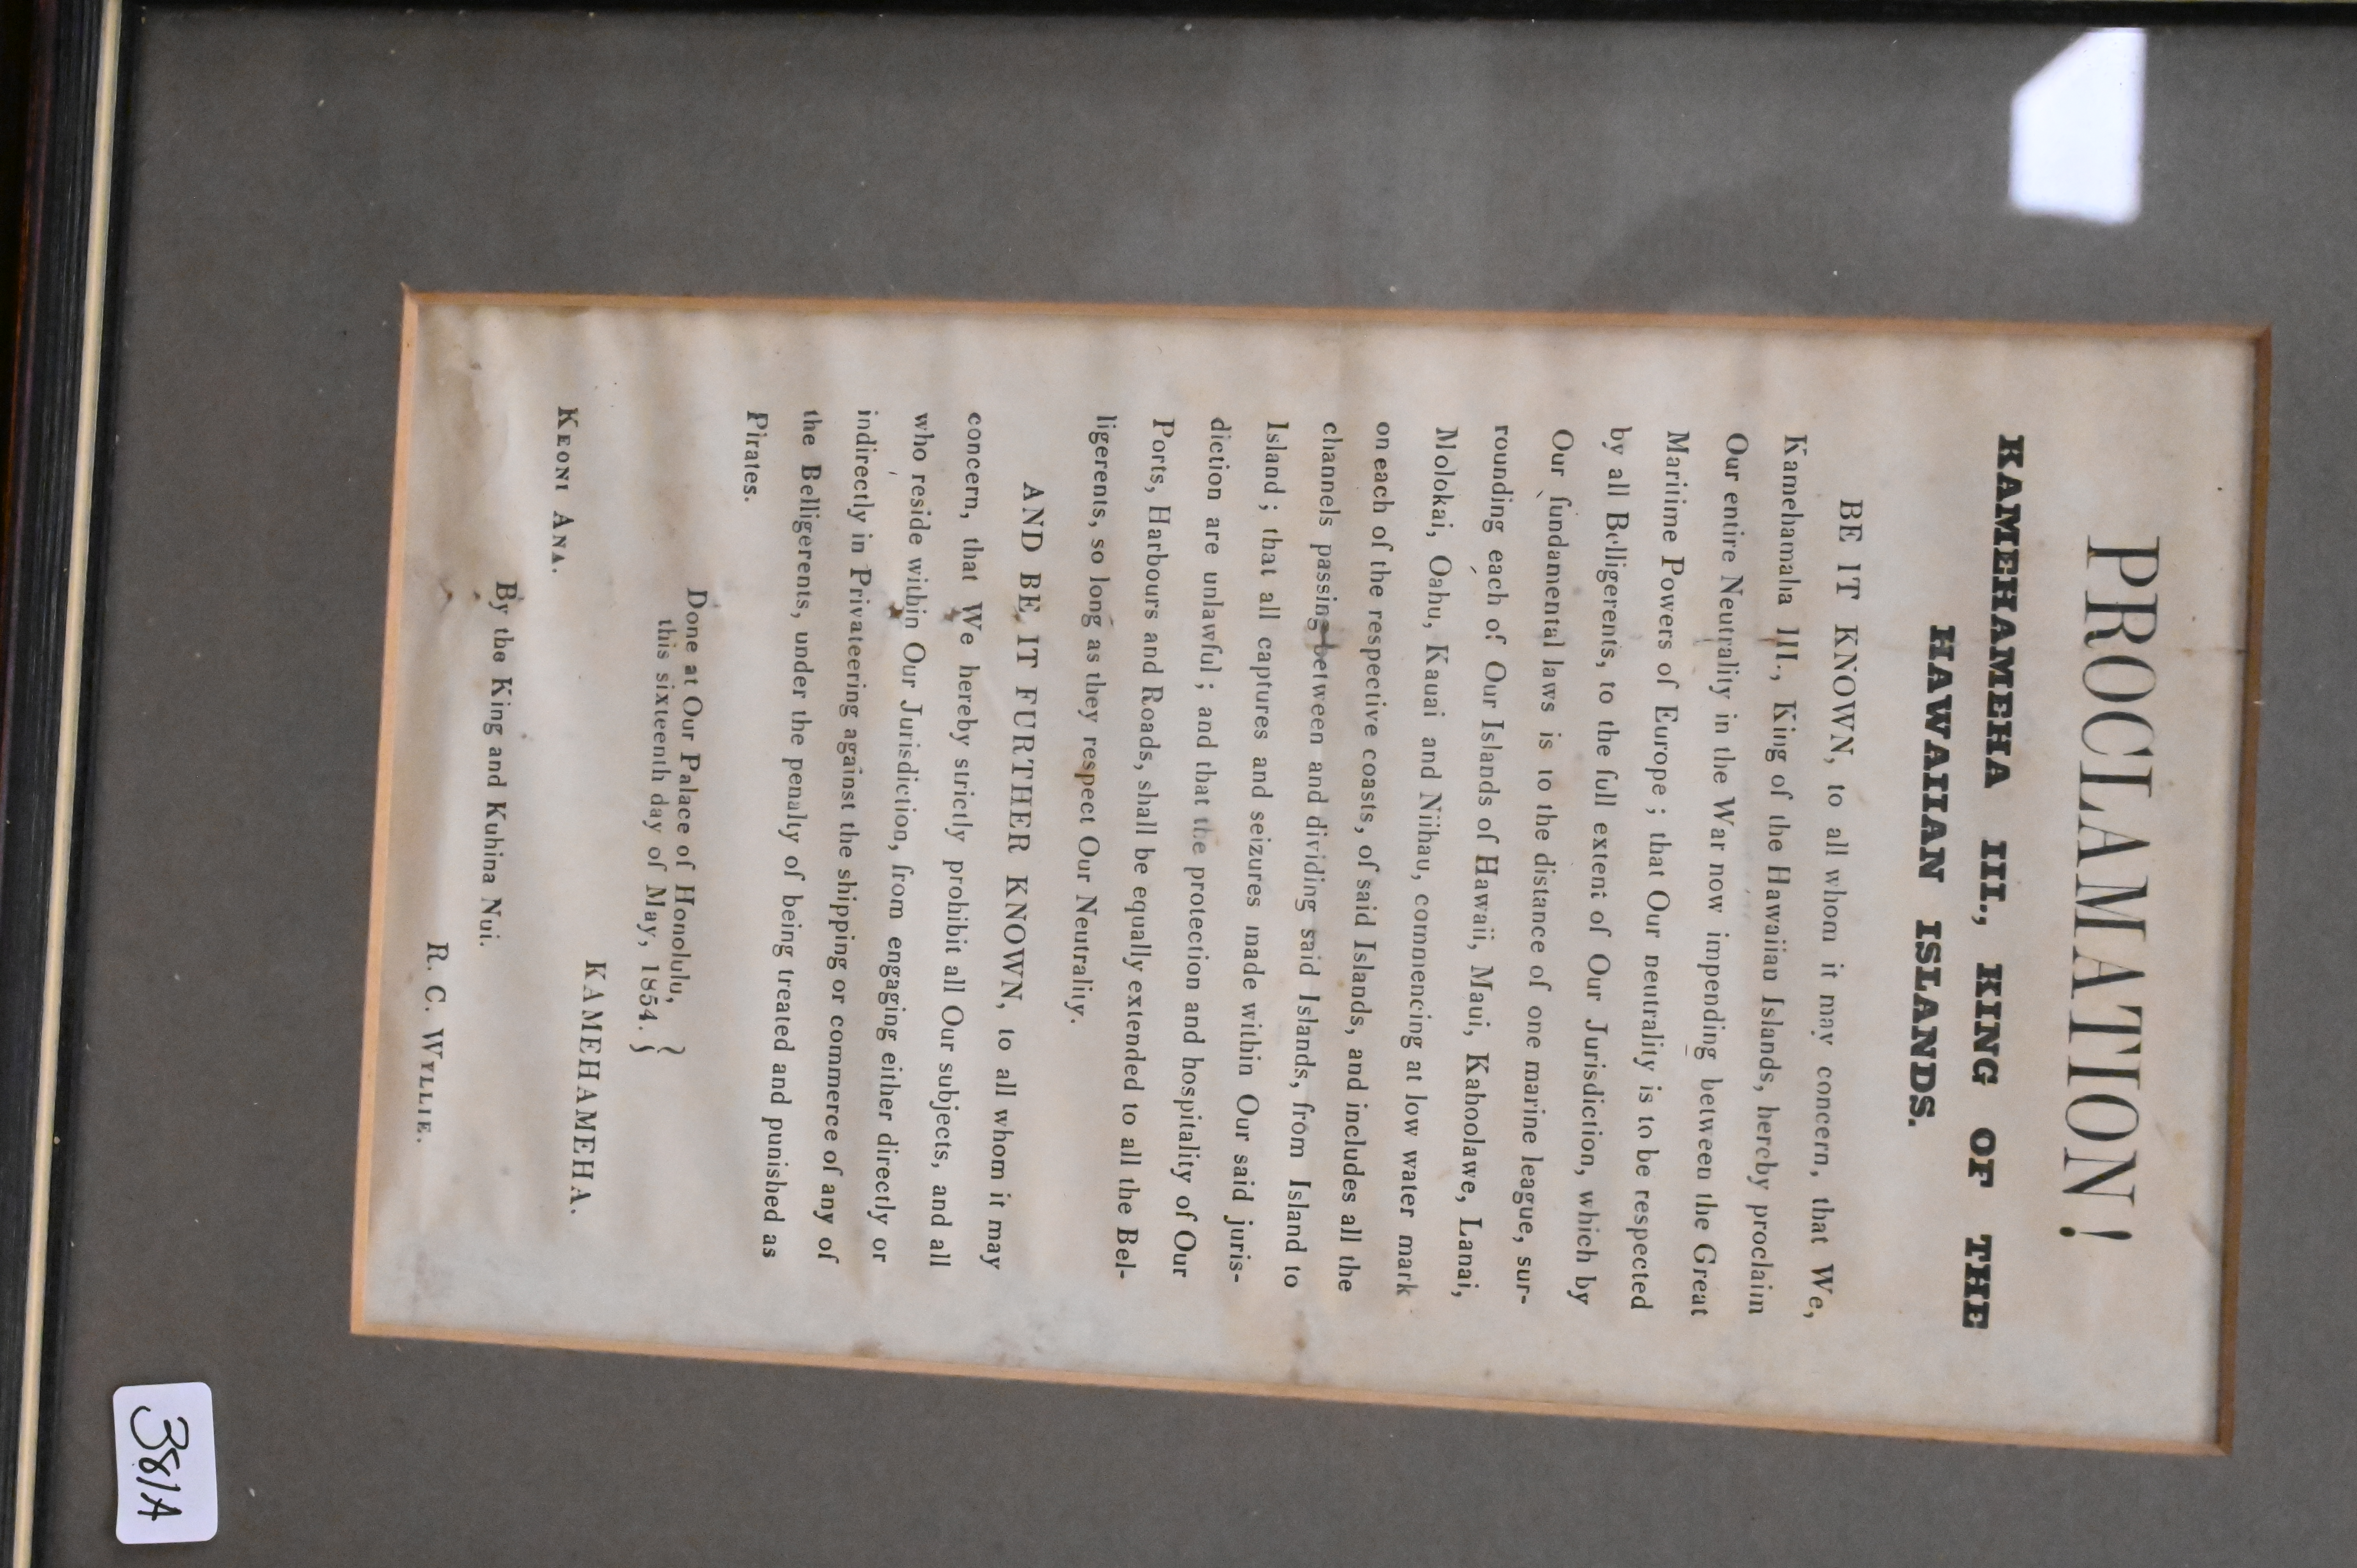 PROCLAMATION!
KAMEHAMEHA III., KING OF THE
HAWAIIAN ISLANDS.
BE IT KNOWN, to all whom it may concern, that We,
Kamehamaha III., King of the Hawaiian Islands, hereby proclaim
Our entire Neutrality in the War now impending between the Great
Maritime Powers of Europe; that Our neutrality is to be respected
by all Belligerents, to the full extent of Our Jurisdiction, which by
Our fundamental laws is to the distance of one marine league, sur-
rounding each of Our Islands of Hawaii, Maui, Kahoolawe, Lanai,
Molokai, Oahu, Kauai and Niihau, commencing at low water mark
on each of the respective coasts, of said Islands, and includes all the
channels passing between and dividing said Islands, from Island to
Island; that all captures and seizures made within Our said juris-
diction are unlawful; and that the protection and hospitality of Our
Ports, Harbours and Roads, shall be equally extended to all the Bel-
ligerents, so long as they respect Our Neutrality.
AND BE IT FURTHER KNOWN, to all whom it may
concern, that We hereby strictly prohibit all Our subjects, and all
who reside within Our Jurisdiction, from engaging either directly or
indirectly in Privateering against the shipping or commerce of any of
the Belligerents, under the penalty of being treated and punished as
Pirates.
Done at Our Palace of Honolulu,
this sixteenth day of May, 1854.
KAMEHAMEHA.
KEONI ANA.
By the King and Kuhina Nui.
R. C. WYLLIE.
381A